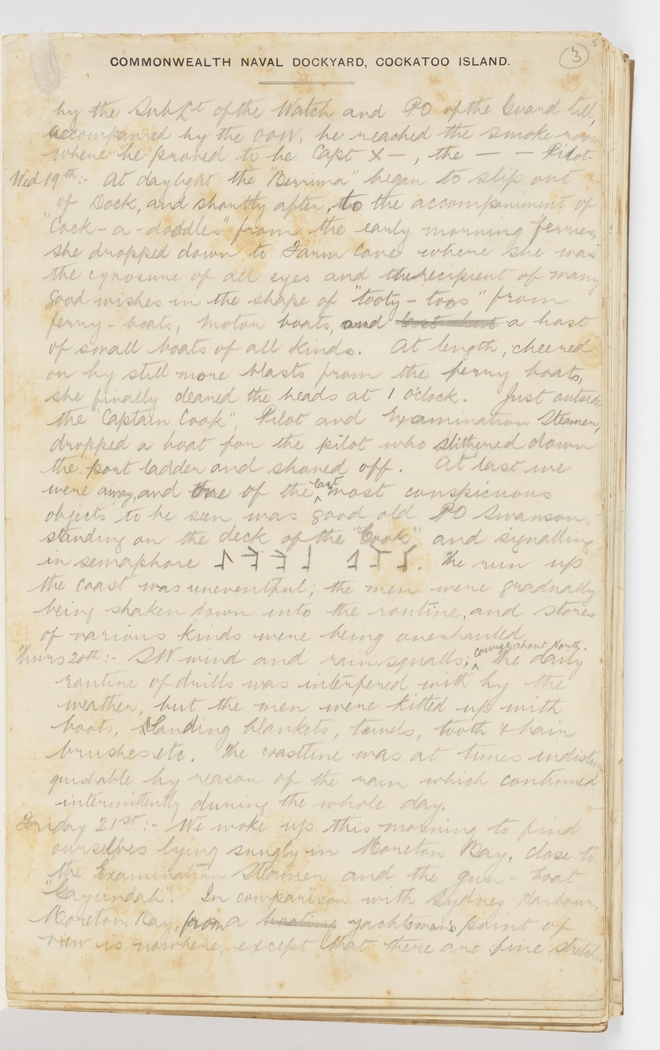 3
5
COMMONWEALTH NAVAL DOCKYARD, COCKATOO ISLAND.
by the Sub Lt of the Watch and PO of the Guard till,
accompanied by the OOW, he reached the smoke room
where he proved to be Capt X —, the — — Pilot.
Wed 19th:- At daylight the "Berrima" began to slip out
of Dock, and shortly after, to the accompaniment of
"Cock-a-doodles" from the early morning ferries,
she dropped down to Farm Cove where she was
the cynosure of all eyes and the recipient of many
good wishes in the shape of "tooty-toos" from
ferry-boats, motor boats, and a host
of small boats of all kinds. At length, cheered
on by still more blasts from the ferry boats,
she finally cleared the heads at 1 o'clock. Just outside
the "Captain Cook", Pilot and Examination Steamer,
dropped a boat for the pilot who slithered down
the port ladder and shoved off. At last we
were away, and one of the last most conspicuous
objects to be seen was good old PO Swanson,
standing on the deck of the "Cook" and signalling
in semaphore . The run up
the coast was uneventful; the men were gradually
being shaken down into the routine, and stores
of various kinds were being overhauled.
Thurs 20th:- SW wind and rain squalls; course about North. the daily
routine of drills was interfered with by the
weather, but the men were kitted up with
boots, blankets, towels, tooth & hair
brushes etc. The coastline was at times indistin
guishable by reason of the rain which continued
intermittently during the whole day.
Friday 21st:- We woke up this morning to find
ourselves lying snugly in Moreton Bay, close to
the Examination Steamer and the gun-boat
"Gayundah". In comparison with Sydney Harbour,
Moreton Bay, from a boating yachtsman's point of
view is nowhere, except that there are fine stretches